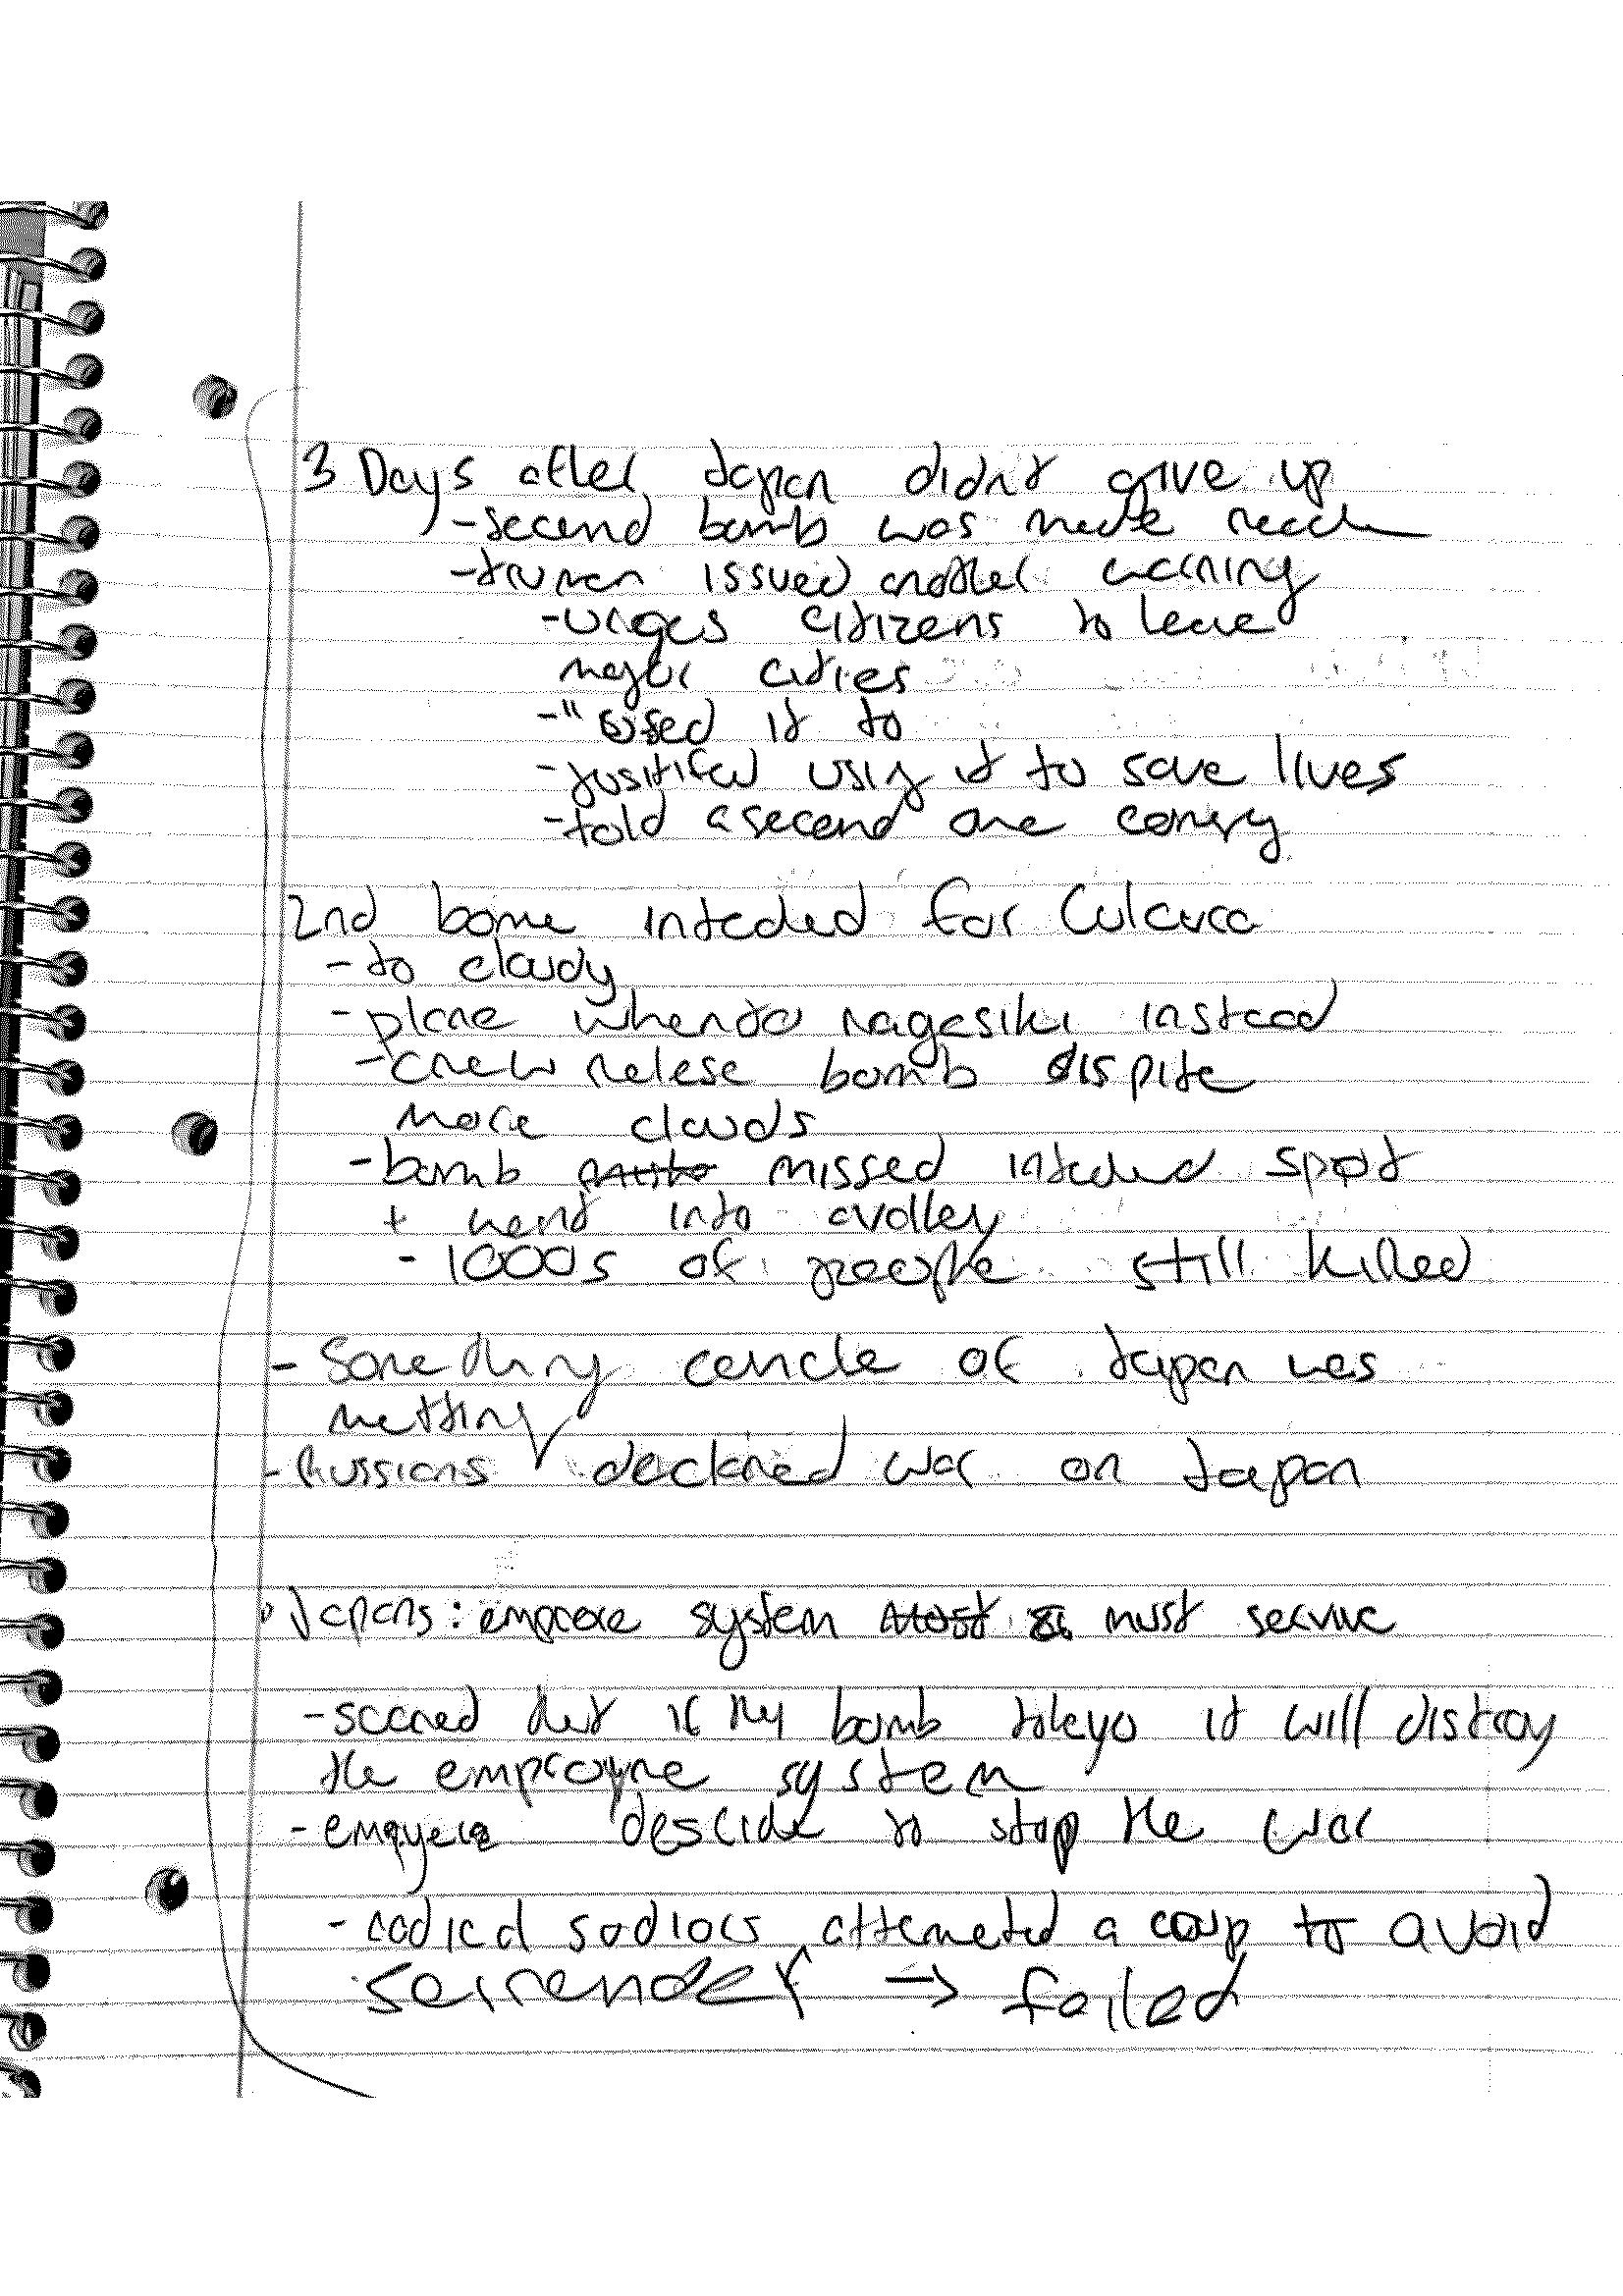 3 Days after Japan didnt give up
-second bomb was made ready
-truman issued another warning
-urges citizens to leave
major cities
-"used it to
-justifed using it to save lives
-told a second one coming
2nd bome inteded for Culcura
-to cloudy
-plane when to nagasiki instead
-crew relese bomb dispite
more clouds
-bomb missed inteded spot
+ went into a valley
-1000s of people still killed
-Some thing cencle of Japan was
metting
-Russians declared war on Japan
Japans: emprore system must must servive
-scared that if they bomb tokyo it will distroy
the emproyre system
- descide to stop the war
-radical sodiors attemeted a coup to avoid
serrender → failed